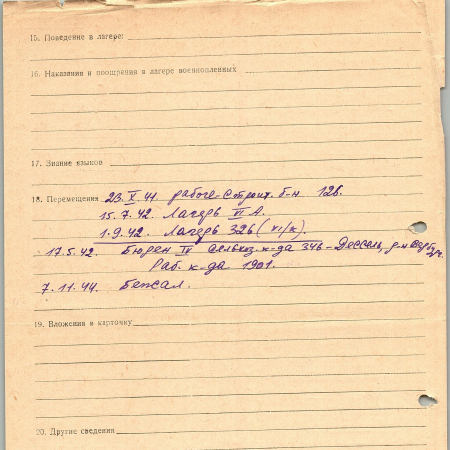 15. Поведение в лагере:
16. Наказания и поощрения в лагере военнопленных
17. Знание языков
18. Перемещения 23.X.41. рабоче-строит. б-н 128.
15.7.42. Лагерь VI А.
1.9.42. Лагерь 326 (VI/к).
17.5.42. Бюрен IV сельхоз. к-да 346 - Дессель, р-н
Раб. к-да 1901.
7.11.44. Бежал.
19. Вложения в карточку
20. Другие сведения